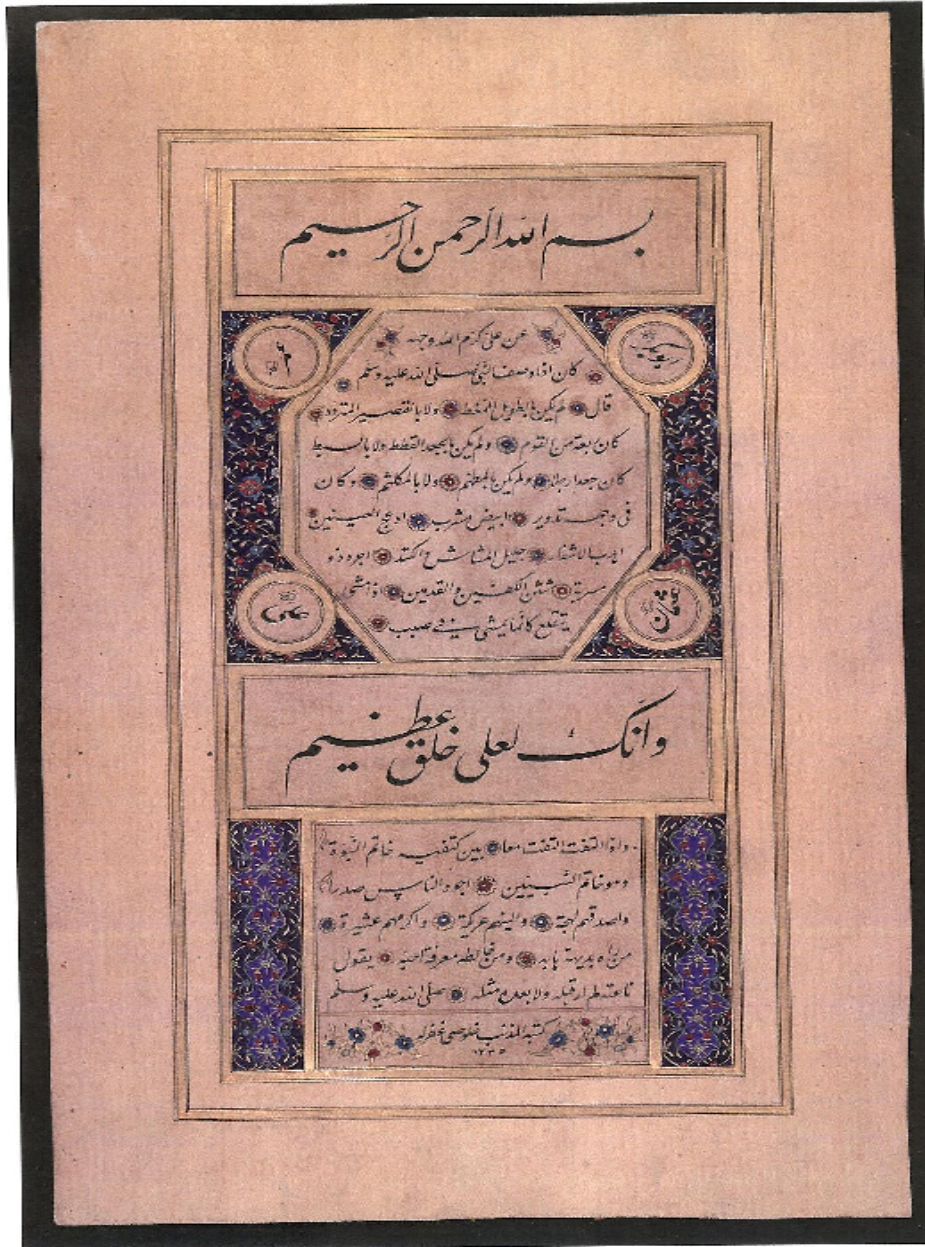 بسم الله الرحمن الرحيم
عن على كرم الله وجهه
كان اذا وصف النبى صلى الله عليه وسلم
قال لم يكن بالطويل الممغط ولا بالقصير المتردد
كان ربعة من القوم ولم يكن بالجعد القطط ولا بالسبط
كان جعدا رجلا ولم يكن بالمطهم ولا بالمكلثم وكان
فى وجهه تدوير ابيض مشرب ادعج العينين
اهدب الاشفار جليل المشاش والكتد اجرد ذو
مسربة شثن الكفين والقدمين اذا مشى
يتقلع كانما يمشى فى صبب
عثمان
على
وانك لعلى خلق عظيم
واذا التفت التفت معا بين كتفيه خاتم النبوة
وهو خاتم النبيين اجود الناس صدرا
واصدقهم لهجة والينهم عريكة واكرمهم عشيرة
من راه بديهة هابه ومن خالطه معرفة احبه يقول
ناعته لم ار قبله ولا بعده مثله صلى الله عليه وسلم
كتبه المذنب خلوصى غفر له
١٢٣٥